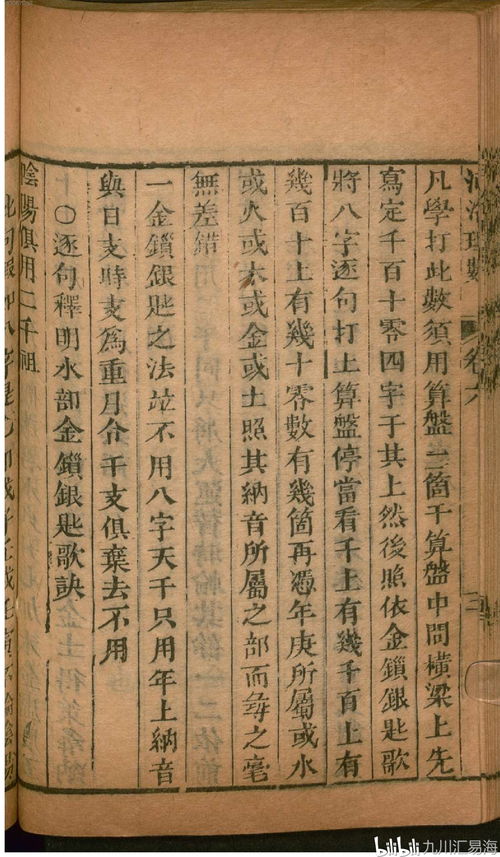 河洛理數 卷六
凡學打此數須用算盤三箇于算盤中間橫梁上先
寫定千百十零四字于其上然後照依金鎖銀匙歌
將八字逐句打上算盤停當看千上有幾千百上有
幾百十上有幾十零數有幾箇再憑年庚所屬或水
或火或木或金或土照其納音所屬之部而尋之毫
無差錯
一金鎖銀匙之法竝不用八字天干只用年上納音
與日支時支爲重月令干支俱棄去不用
十〇逐句釋明水部金鎖銀匙歌訣
陰陽俱用二千祖
bilibili 九川汇易海